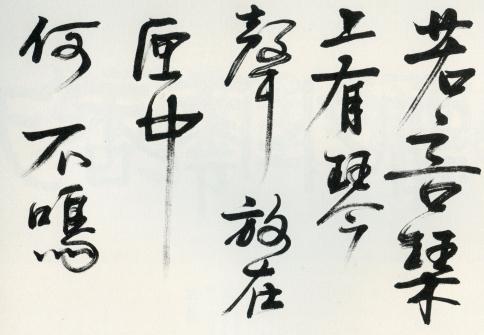 若言琹
上有琴
聲放在
匣中
何不鳴